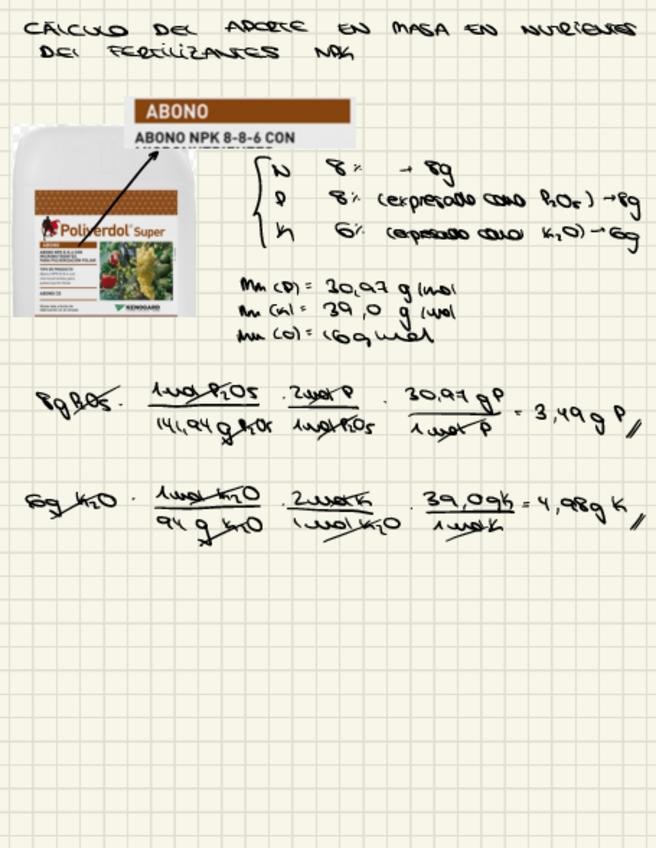 CÁLCULO DEL APORTE EN MASA EN NUTRIENTES
DEL FERTILIZANTES NPK
ABONO
ABONO NPK 8-8-6 CON
Poliverdol Super
ABONO
KENOGARD
N 8% → 8g
P 8% (expresado como P₂O₅) → 8g
K 6% (expresado como K₂O) → 6g
Mm (P) = 30,97 g/mol
Mm (K) = 39,0 g/mol
Mm (O) = 16 g/mol
8g P₂O₅ · 1 mol P₂O₅ / 141,94 g P₂O₅ · 2 mol P / 1 mol P₂O₅ · 30,97 g P / 1 mol P = 3,49 g P //
6g K₂O · 1 mol K₂O / 94 g K₂O · 2 mol K / 1 mol K₂O · 39,0 g K / 1 mol K = 4,98 g K //